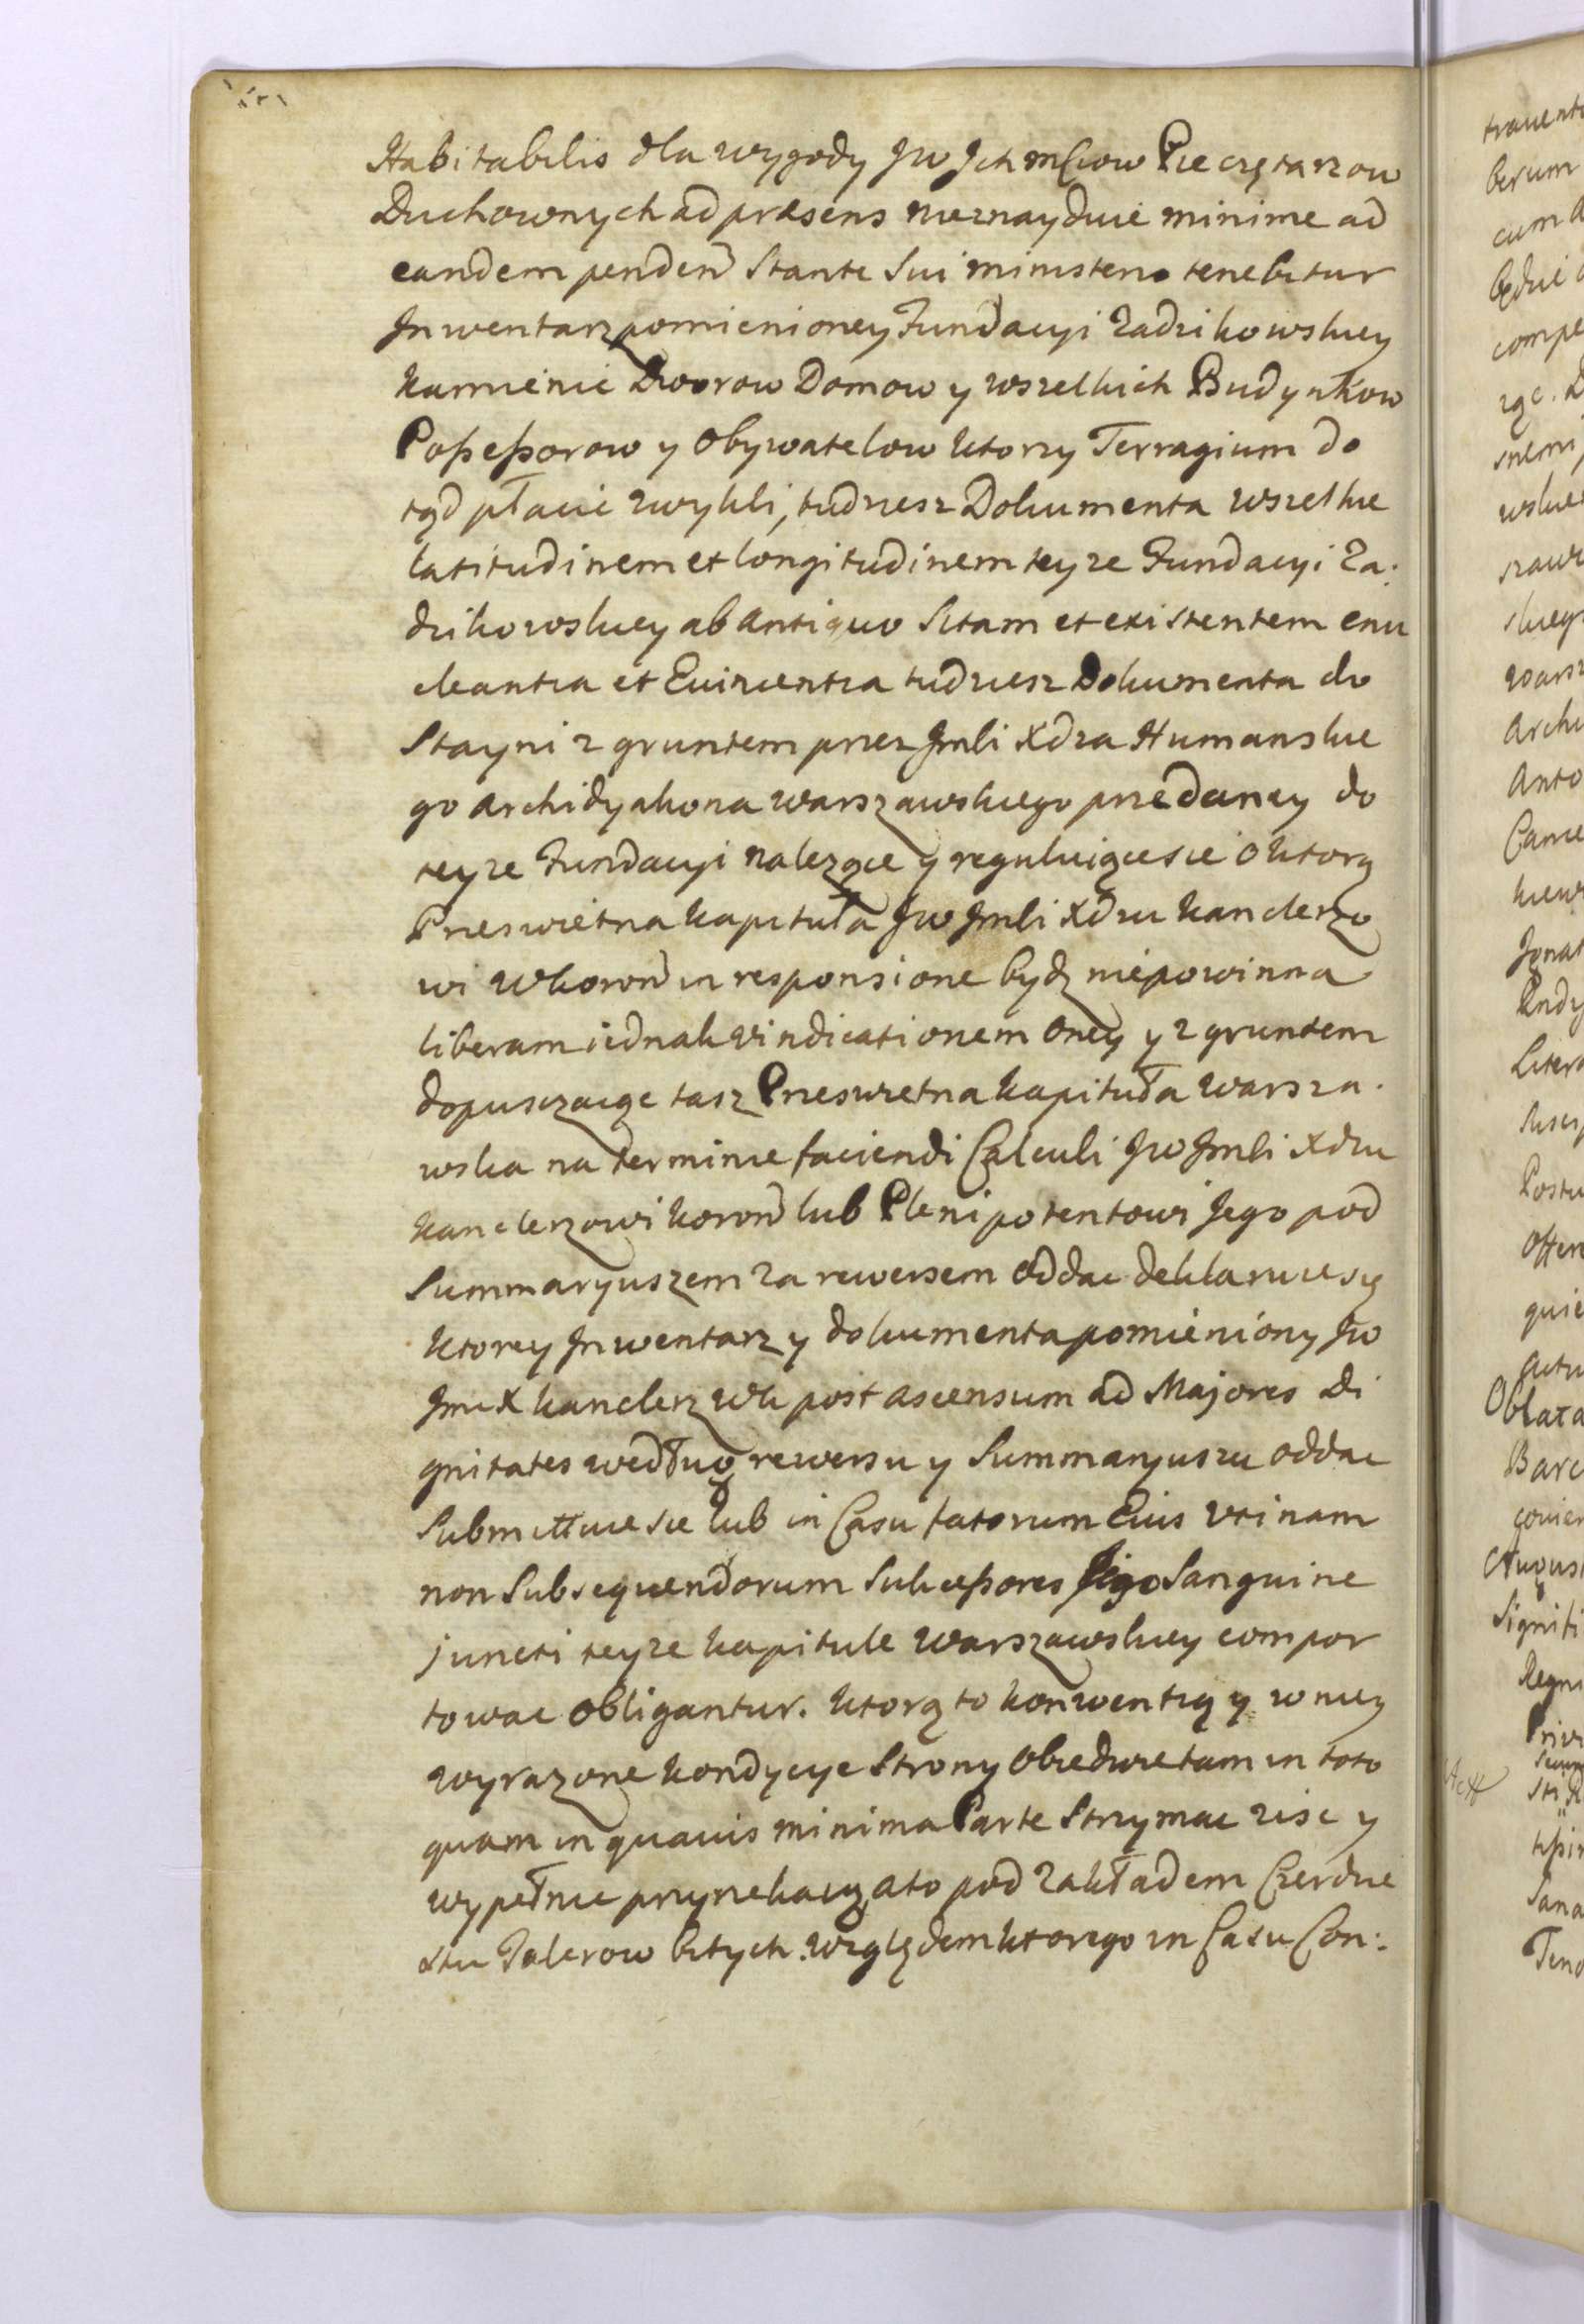 Habitabilis dla wygody Jw Jch mściow Pieczętarzow
Duchownych ad præsens nieznayduie minime ad
eandem penden Stante Sui ministerio tenebitur
Jnwentarz pomienioney Fundacyi Zadzikowskiey
kamienic Dworow Domow y wszelkich Budynkow
Poßeßorow y Obywatelow ktorzy Terragium do
tąd płacić zwykli, tudziesz Dokumenta wszelkie
latitudinem et longitudinem teyze Fundacyi Za:
dzikowskiey ab antiquo Sitam et existentem enu
cleantia et Evincentia tudziesz Dokumenta do
Stayni z gruntem przez Jmści Xdza Humanskie
go Archidyakona warszawskiego przedaney do
teyze Fundacyi nalezące y reguluiącesie o ktorą
Przeswietna kapituła Jw Jmści Xdzu kanclerzo
wi wkoron in responsione bydz niepowinna
liberam iednak vindicationem oney y z gruntem
dopuszczaiąc tasz Przeswietna kapituła Warsza.
wska na terminie faciendi Calculi Jw Jmści Xdzu
kanclerzowi koron lub Plenipotentowi Jego pod
Summaryuszem za rewersem oddac deklaruie się
ktorey Jnwentarz y dokumenta pomieniony Jw
Jmc X kanclerz wk post ascensum ad Majores Di
gnitates według rewersu y Summaryuszu oddac
Submittuie sie lub in Casu fatorum Eius utinam
non Subsequendorum Sukceßores Jego Sanguine
juncti teyze kapitule warszawskiey compor
towac obligantur. ktorą to konwentią y w niey
wyrazone kondycye Strony Obiedwie tam in toto
quam in quavis minima Parte Strzymac zisc y
wypełnic przyrzekaią, a to pod zakładem Czerdzie
stu Talerow bitych. względem ktorego in Casu Con: